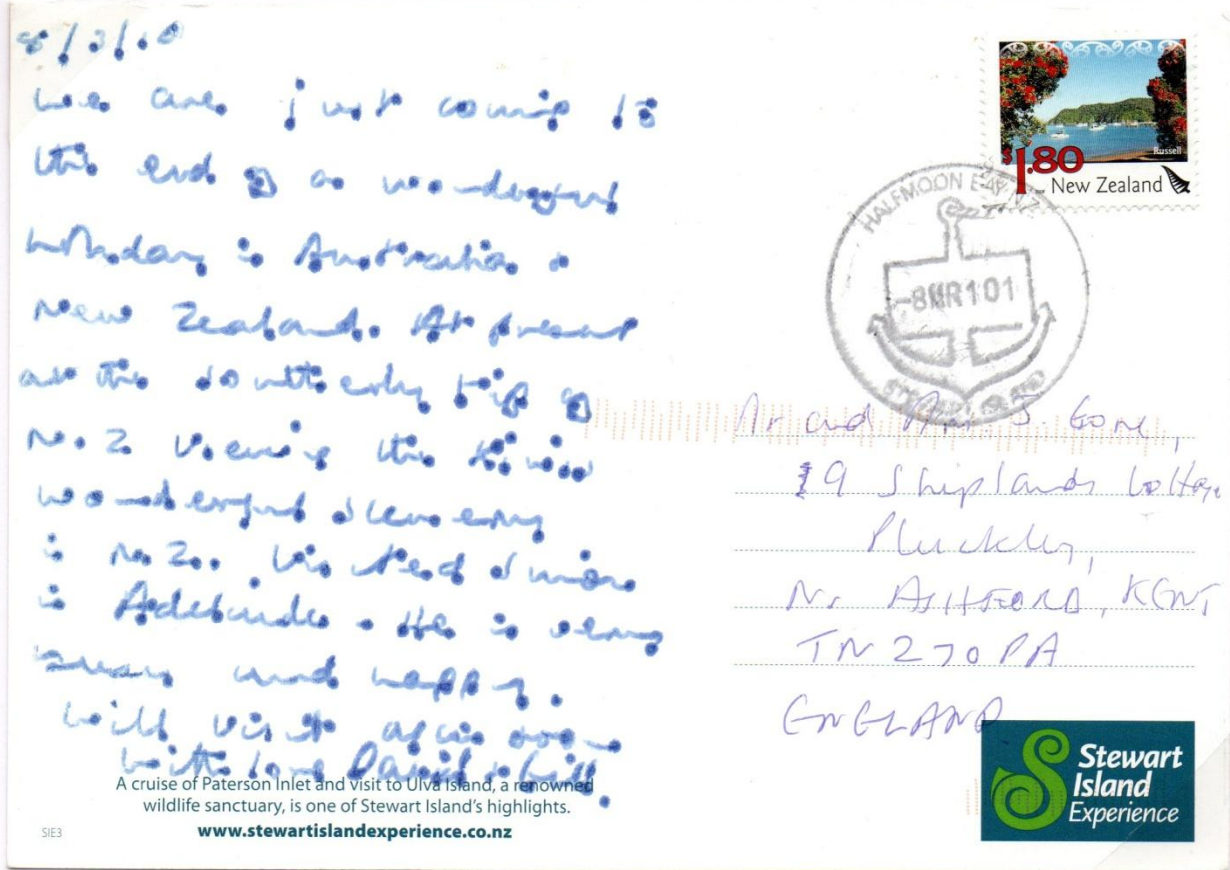 8/3/10
We are just coming to
the end of a wonderful
holiday in Australia &
New Zealand. At present
at the southerly tip of
N.Z viewing the Kiwis
wonderful scenery
in N.Z.. Visited Simon
in Adelaide. He is very
and happy.
Will visit again soon
with love David & Gill.
A cruise of Paterson Inlet and visit to Ulva Island, a renowned
wildlife sanctuary, is one of Stewart Island's highlights.
www.stewartislandexperience.co.nz
SIE3
Russell
$1.80
New Zealand
HALFMOON BAY NZ
-8MR101
STEWART ISLAND
Mr and Mrs J. Gore,
19 Shiplands Cottage
Pluckley,
Nr ASHFORD, KENT
TN270PA
ENGLAND
Stewart
Island
Experience